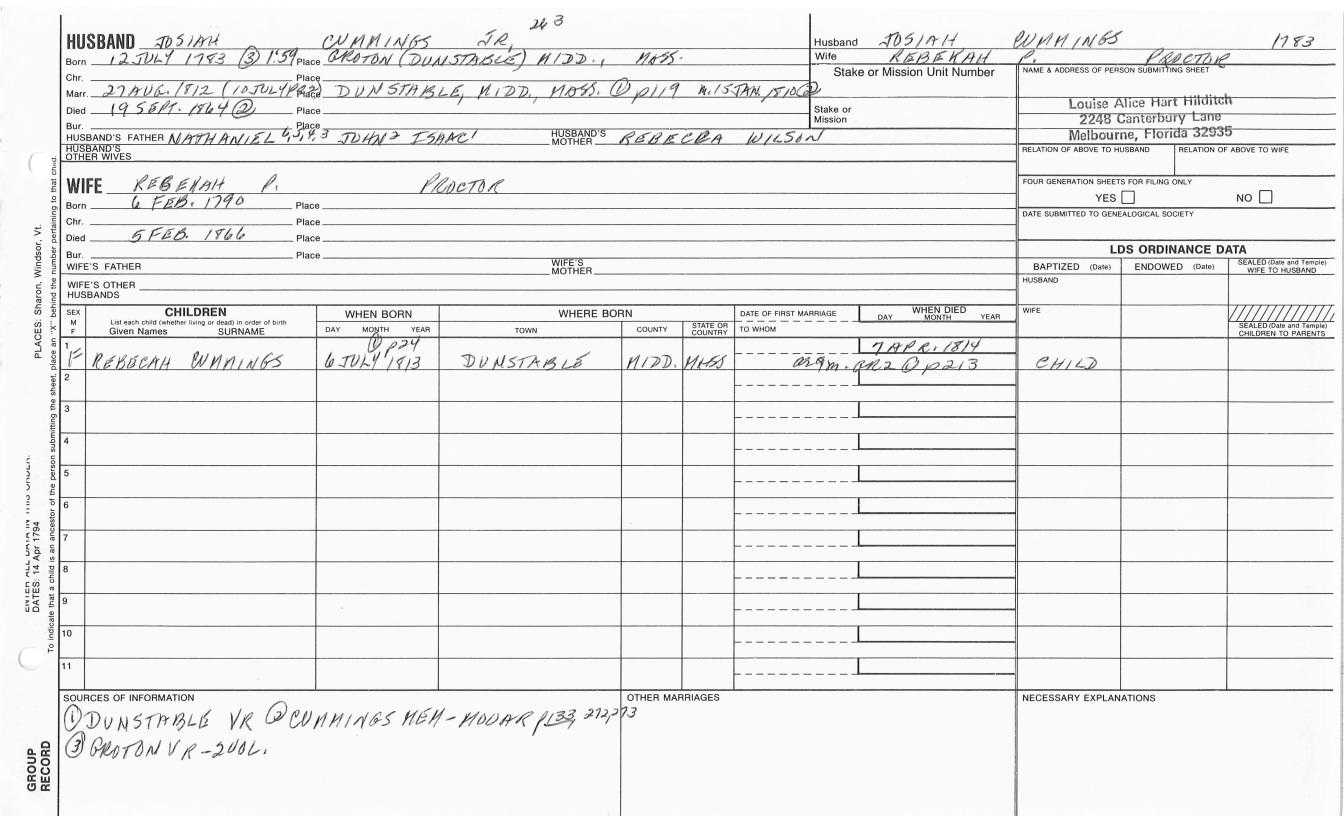 263
HUSBAND JOSIAH CUMMINGS JR,
Born 12 JULY 1783 (3) 1:59 Place GROTON (DUNSTABLE) MIDD., MASS.
Chr. Place
Marr. 27 AUG. 1812 (10 JULY Place DUNSTABLE, MIDD., MASS. (1) p119 m. 15 JAN. 1810 (2)
Died 19 SEPT. 1864 (2) Place
Bur. Place
HUSBAND'S FATHER NATHANIEL 6,5,4,3 JOHN 2 ISAAC 1 HUSBAND'S MOTHER REBECCA WILSON
HUSBAND'S OTHER WIVES
WIFE REBEKAH P. PROCTOR
Born 6 FEB. 1790 Place
Chr. Place
Died 5 FEB. 1866 Place
Bur. Place
WIFE'S FATHER WIFE'S MOTHER
WIFE'S OTHER HUSBANDS
Husband JOSIAH CUMMINGS 1783
Wife REBEKAH P. PROCTOR
Stake or Mission Unit Number
Stake or Mission
NAME & ADDRESS OF PERSON SUBMITTING SHEET
Louise Alice Hart Hilditch
2248 Canterbury Lane
Melbourne, Florida 32935
RELATION OF ABOVE TO HUSBAND RELATION OF ABOVE TO WIFE
FOUR GENERATION SHEETS FOR FILING ONLY
YES NO
DATE SUBMITTED TO GENEALOGICAL SOCIETY
LDS ORDINANCE DATA
BAPTIZED (Date) ENDOWED (Date) SEALED (Date and Temple) WIFE TO HUSBAND
HUSBAND
WIFE
SEALED (Date and Temple) CHILDREN TO PARENTS
SEX M F
CHILDREN
List each child (whether living or dead) in order of birth
Given Names SURNAME
WHEN BORN
DAY MONTH YEAR
WHERE BORN
TOWN COUNTY STATE OR COUNTRY
DATE OF FIRST MARRIAGE
TO WHOM
WHEN DIED
DAY MONTH YEAR
1 (1) p24 7 APR. 1814
F REBECAH CUMMINGS 6 JULY 1813 DUNSTABLE MIDD. MASS GR2 (1) p213 CHILD
2
3
4
5
6
7
8
9
10
11
SOURCES OF INFORMATION
(1) DUNSTABLE VR (2) CUMMINGS MEM - MOOAR p133, 272,273
(3) GROTON VR - 2 VOL.
OTHER MARRIAGES
NECESSARY EXPLANATIONS
PLACES: Sharon, Windsor, Vt.
DATES: 14 Apr 1794
To indicate that a child is an ancestor of the person submitting the sheet, place an "X" behind the number pertaining to that child.
GROUP RECORD